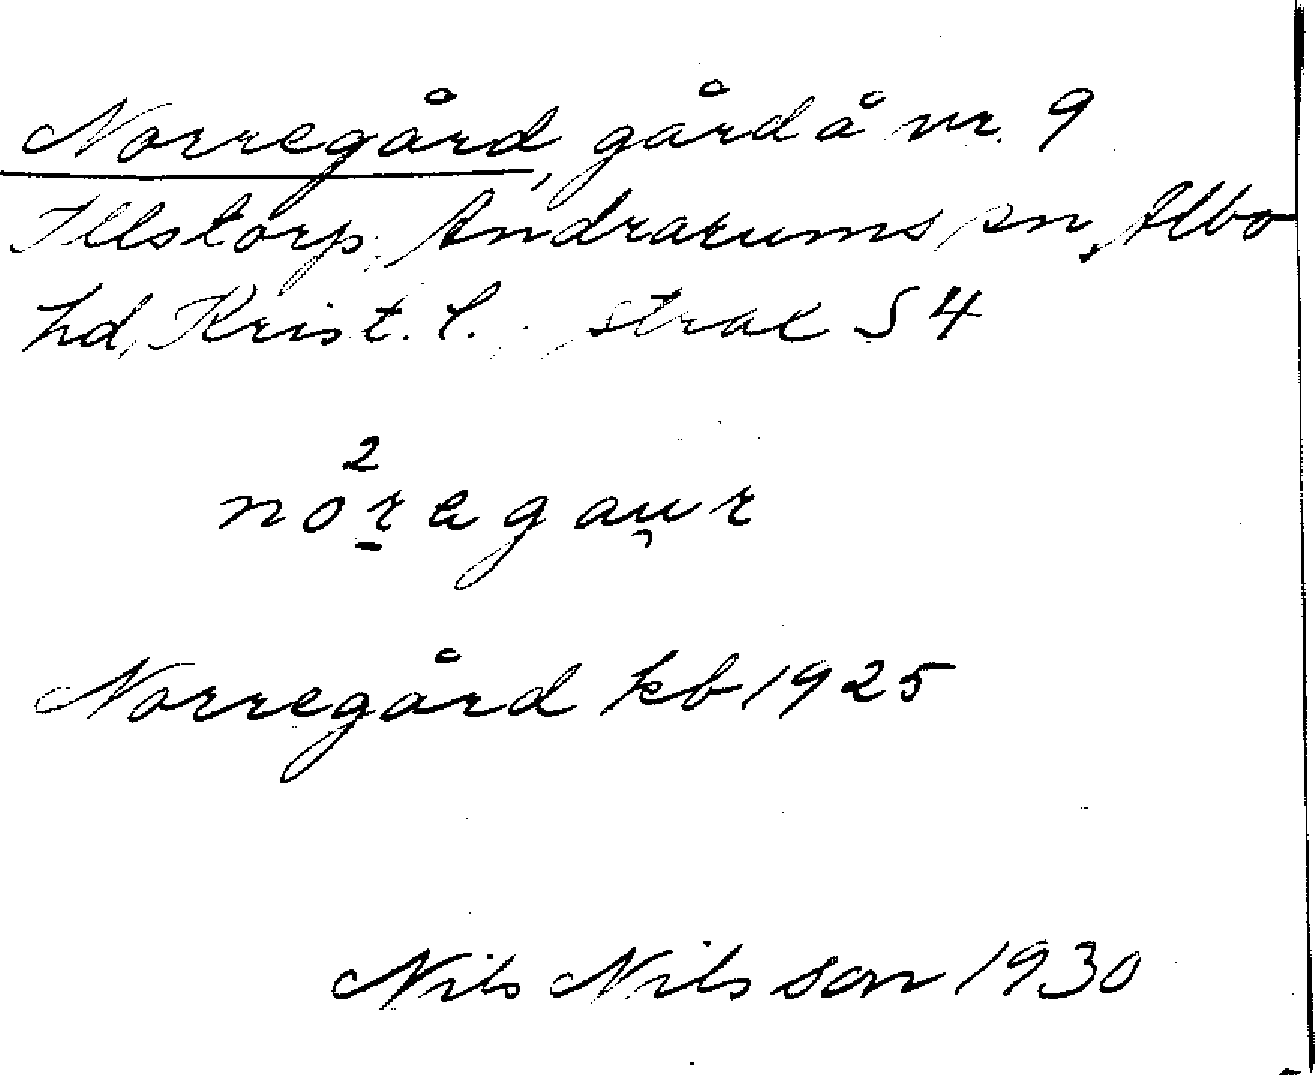 Norregård, gård å nr. 9
Illstorp, Andrarums sn, Albo
hd, Krist. l., strax S 4
2
noragau̯r
Norregård kb 1925
Nils Nilsson 1930